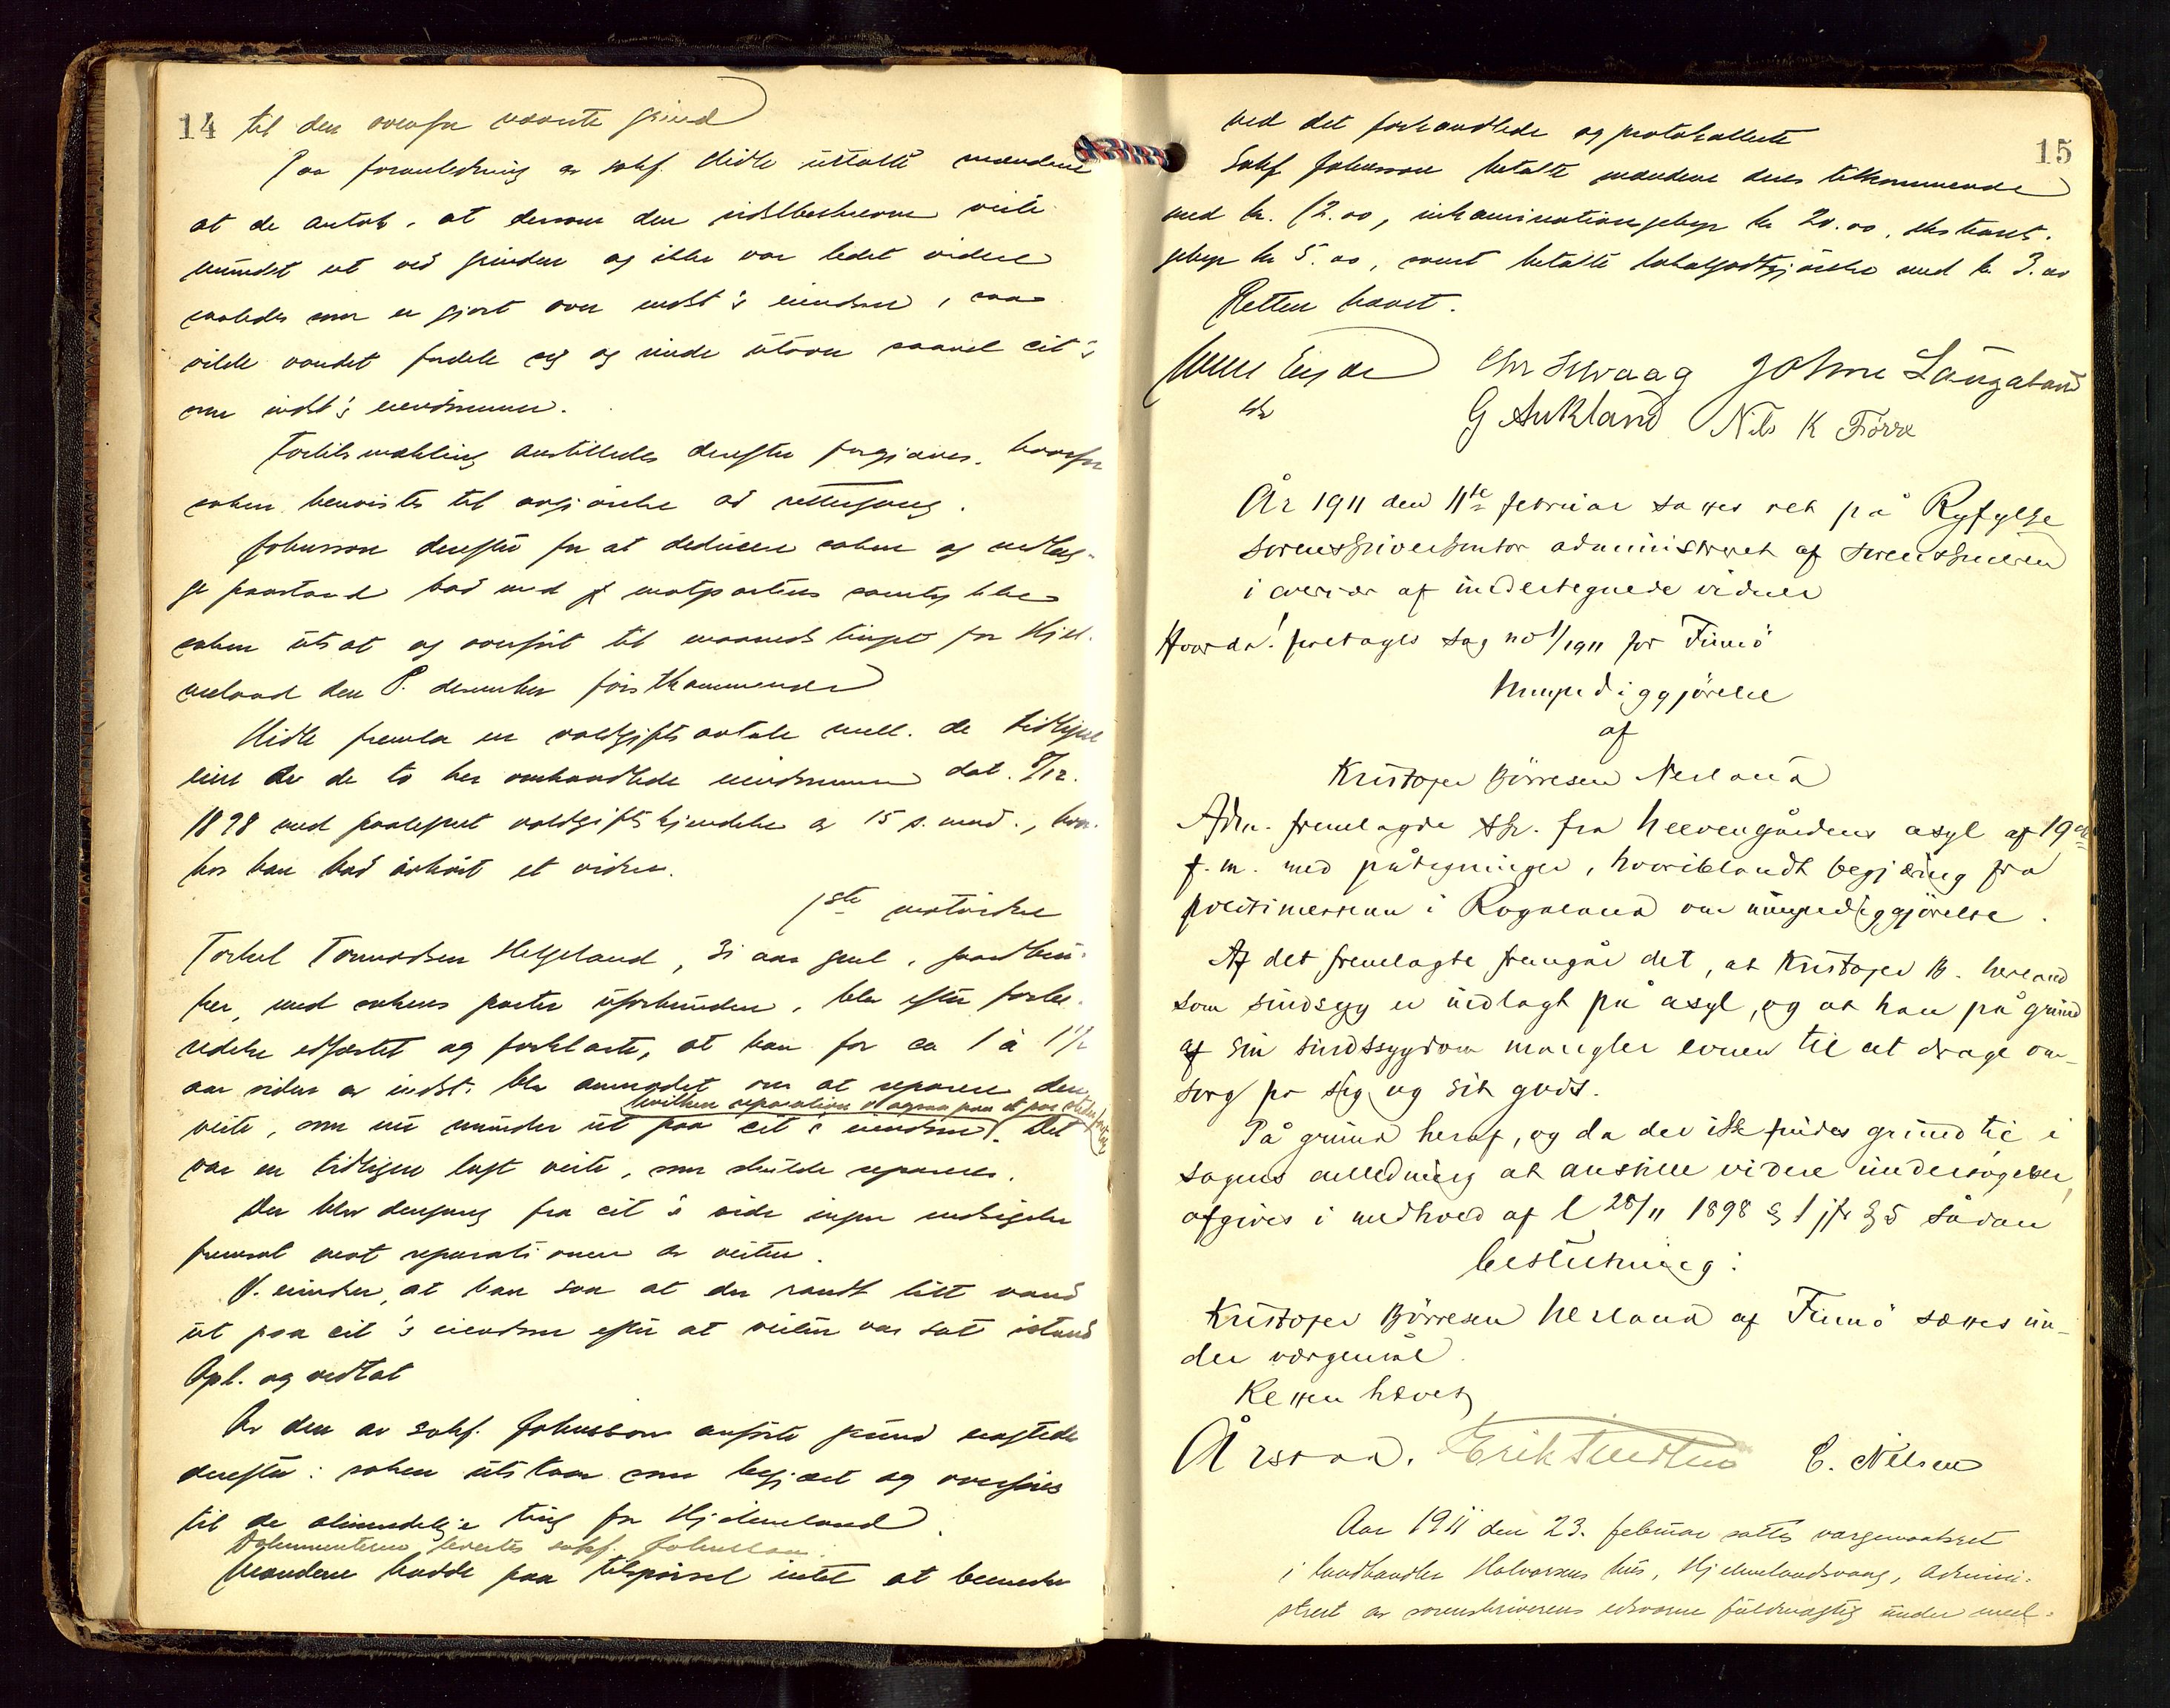 14 til den ovenfor nævnte grind
Paa foranledning av sakf. Hidle uttalte mændene
at de antok, at dersom den sidstbeskrevne veite
mundet ut ved grinden og ikke var ledet videre
saaledes som er gjort over indst's eiendom, saa
vilde vandet fordele sig og rinde utover saavel cit's
som indst's eiendommer.
Forliksmækling anstilledes derefter forgjæves, hvorfor
saken henvistes til avgjørelse ad rettergang.
Johnsson derefter for at deducere saken og nedlæg-
ge paastand bad med motpartens samtykke
saken utsat og overført til maanedstinget for Hjel-
meland den 8. desember førstkommende
Hidle fremla en voldgiftsavtale mell. de tidligere
eiere av de to her omhandlede eiendommer dat. 8/12.
1898 med paategnet voldgiftskjendelse av 15 s. mnd., hvor-
hos han bad avhørt et vidne.
1ste motvidne
Torkel Tormodsen Helgeland, 31 aar gml., gaardbru-
ker, med sakens parter uforbunden, blev efter forbe-
redelse edfæstet og forklarte, at han for ca 1 à 1 1/2
aar siden av indst. blev anmodet om at reparere den
hvilken reparation ogsaa paa et par steder foretoges
veite, som nu munder ut paa cit's eiendom. Det
var en tidligere lagt veite, som skulde repareres.
Der blev dengang fra cit's side ingen indsigelse
fremsat mot reparationen av veiten.
V. minder, at han saa at der randt litt vand
ut paa cit's eiendom efter at veiten var sat istand
Opl. og vedtat
Av den av sakf. Johnsson anførte grund vedtoges
derefter: saken utstaar som begjært og overføres
til de almindelige ting for Hjelmeland.
Dokumenterne levertes sakf. Johnsson.
Mændene hadde paa tilspørsel intet at bemerke
15
ved det forhandlede og protokollerte
Sakf Johnsson betalte mændene deres tilkommende
med kr. 12.00, inkaminationsgebyr kr 20.00, ekstraret-
gebyr kr 5.00, samt betalte lokalgodtgjørelse med kr 3.00
Retten hævet.
Chr Selvaag Johne Langaland
G Aukland Nils KFørre
År 1911 den 11te februar sattes ret på Ryfylke
sorenskriverkontor administreret af sorenskriveren
i overvær af undertegnede vidner
Hvorda! foretages sag no 1/1911 for Finnö
Umyndiggjörelse
af
Kristofer Börresen Nerland
Adm. fremlagde skr. fra Neevengårdens asyl af 19de
f.m. med påtegninger, hvoriblandt begjæring fra
politimesteren i Rogaland om umyndiggjörelse.
Af det fremlagte fremgår det, at Kristofer B. Nerland
som sindssyg er indlagt på asyl, og at han på grund
af sin sindssygdom mangler evnen til at drage om-
sorg for sig og sit gods.
På grund heraf, og da der ikke findes grund til i
sagens anledning at anstille videre undersögelser,
afgives i medhold af l 28/11 1898 § 1 jfr § 5 sådan
beslutning:
Kristofer Börresen Nerland af Finnö sættes un-
der værgemål.
Retten hævet
Årstad. Erik C. Nilsen
Aar 1911 den 23. februar sattes værgemaalsret
i landhandler Halvorsens hus, Hjelmelandsvaag, admini-
strert av sorenskriverens edsvorne fuldmægtig under med-